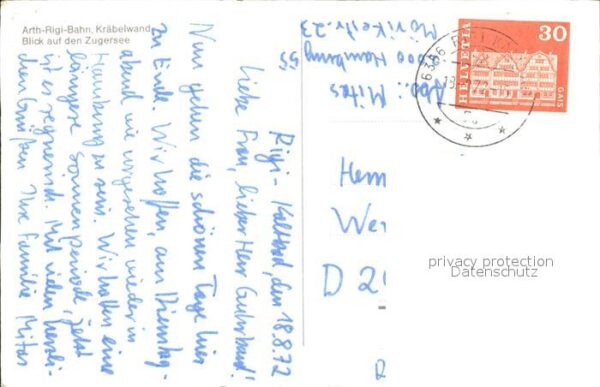 Arth-Rigi-Bahn, Kräbelwand
Blick auf den Zugersee
Rigi-Kaltbad, den 18.8.72
Liebe Frau, lieber Herr
Nun gehen die schönen Tage hier
zu Ende. Wir hoffen, am Dienstag-
abend wie vorgesehen wieder in
Hamburg zu sein. Wir hatten eine
längere Sonnenperiode, jetzt
ist es regnerisch. Mit vielen herzli-
chen Grüßen Ihre Familie Mitas
Abs.: Mitas
2000 Hamburg 55
Mörikestr. 23
6356 RIGI
HELVETIA
30
GAIS
Herrn
We
D 2
privacy protection
Datenschutz